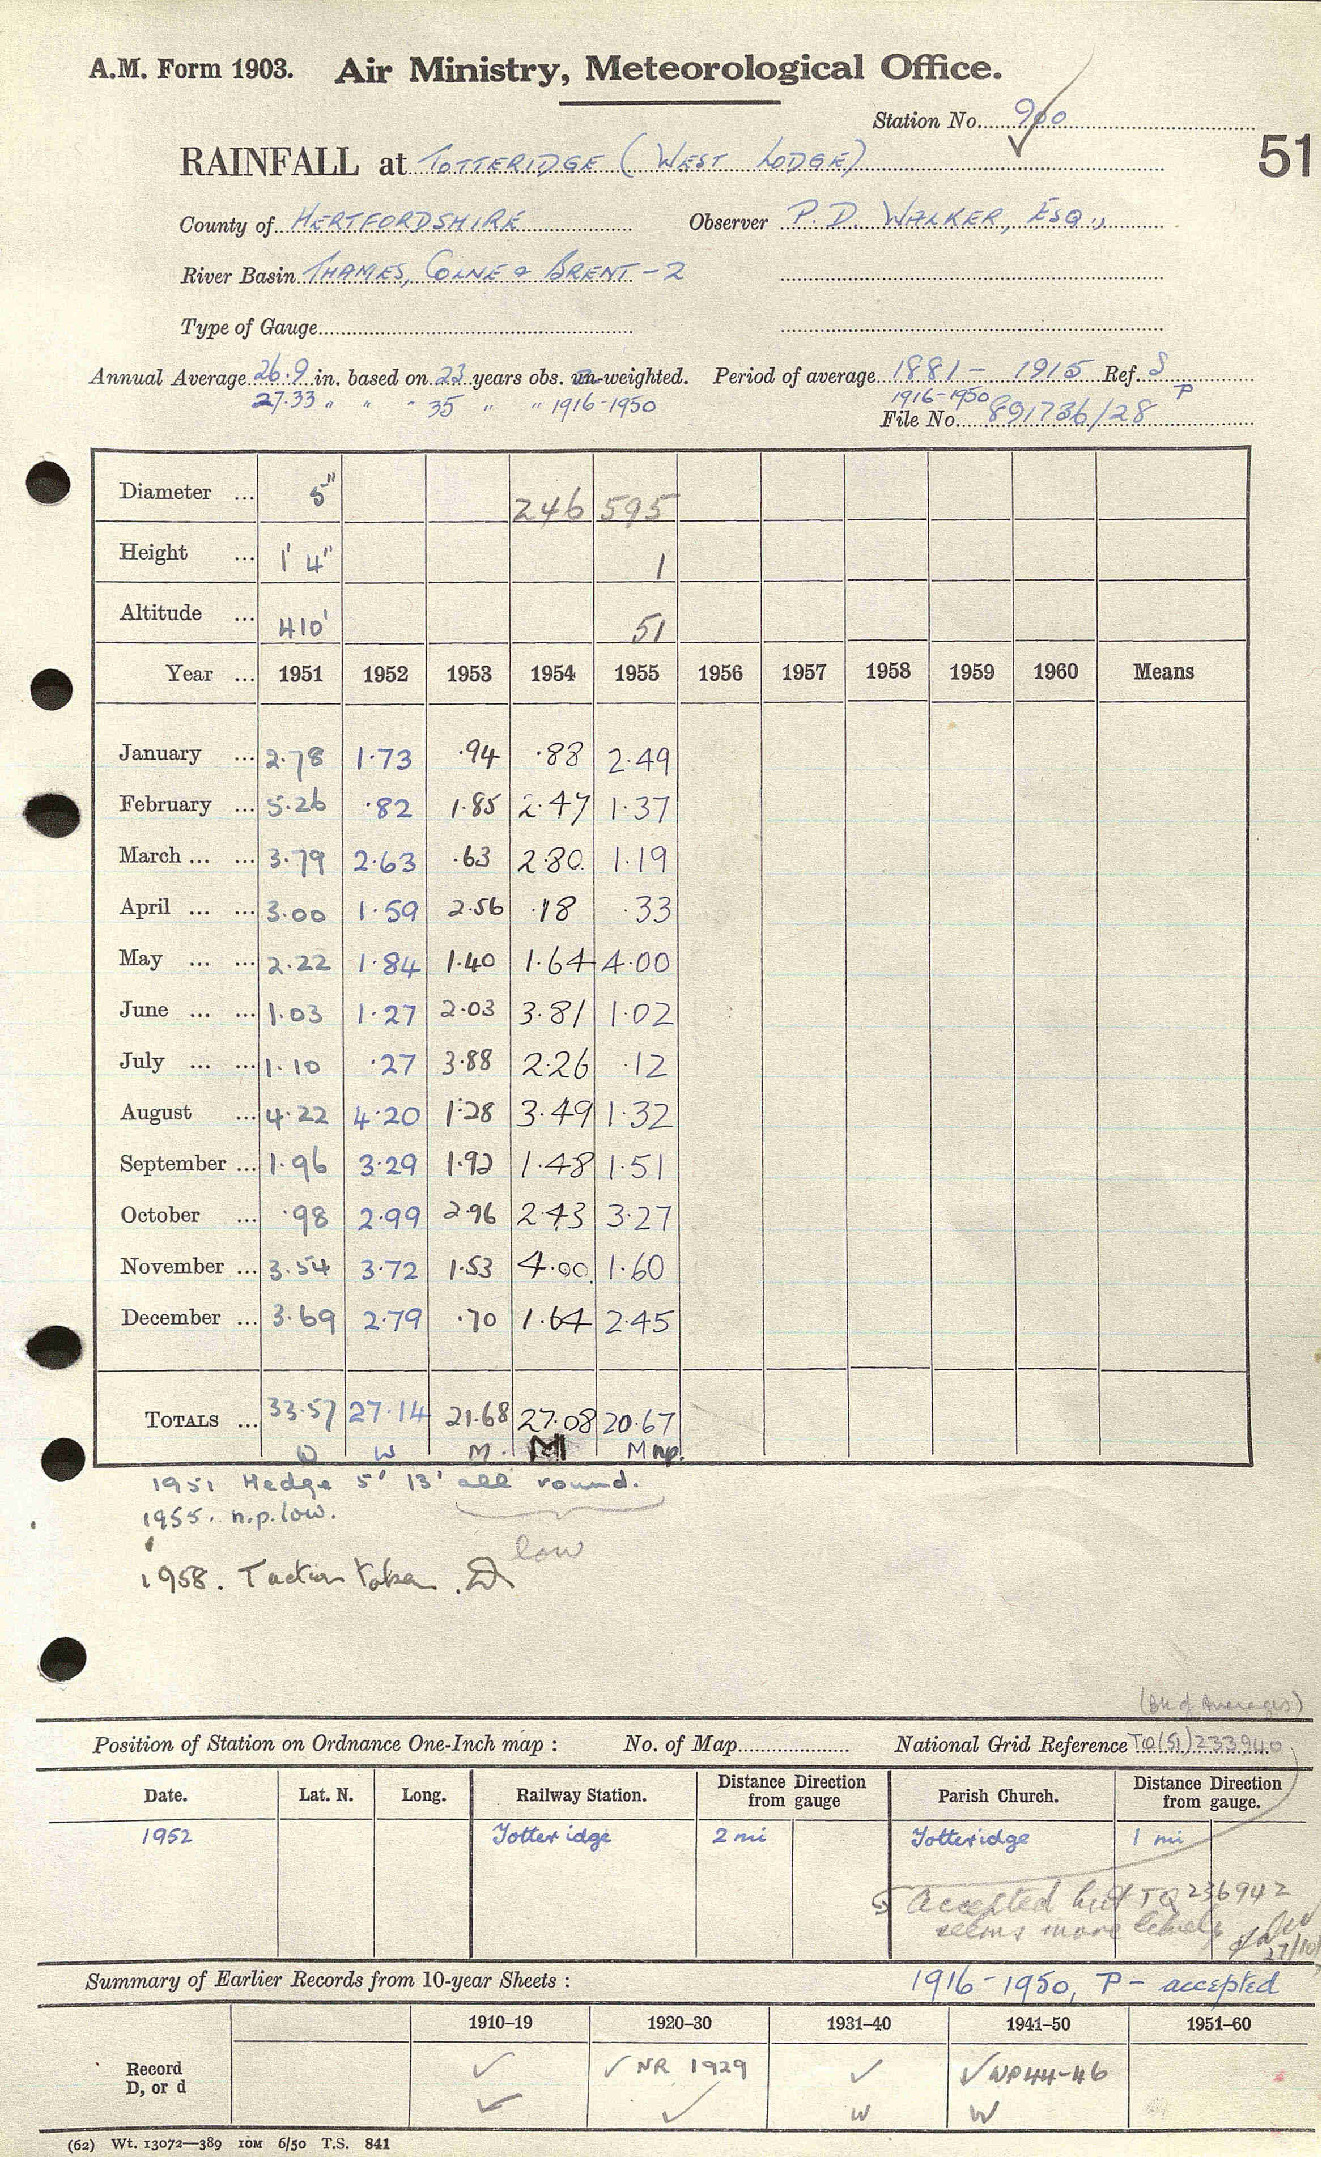 A.M. Form 1903. Air Ministry, Meteorological Office.
Station No. 900
RAINFALL at TOTTERIDGE (WEST LODGE)
51
County of HERTFORDSHIRE Observer P.D. WALKER, ESQ.,
River Basin THAMES, COLNE & BRENT - 2
Type of Gauge
Annual Average 26.9 in. based on 22 years obs. un-weighted. Period of average 1881 - 1915 Ref. S
27.33 " " " 35 " " 1916-1950 1916-1950 P
File No. 891736/28
Diameter ... 5" 246 595
Height ... 1' 4" 1
Altitude ... 410' 51
Year ... 1951 1952 1953 1954 1955 1956 1957 1958 1959 1960 Means
January ... 2.78 1.73 .94 .88 2.49
February ... 5.26 .82 1.85 2.47 1.37
March ... ... 3.79 2.63 .63 2.80 1.19
April ... ... 3.00 1.59 2.56 .18 .33
May ... ... 2.22 1.84 1.40 1.64 4.00
June ... ... 1.03 1.27 2.03 3.81 1.02
July ... ... 1.10 .27 3.88 2.26 .12
August ... 4.22 4.20 1.28 3.49 1.32
September ... 1.96 3.29 1.92 1.48 1.51
October ... .98 2.99 2.96 2.43 3.27
November ... 3.54 3.72 1.53 4.00 1.60
December ... 3.69 2.79 .70 1.64 2.45
TOTALS ... 33.57 27.14 21.68 27.08 20.67
W M. M M np.
1951 Hedge 5' 13' all round.
1955. n.p. low.
low
1958. taken
(Bk of Averages)
Position of Station on Ordnance One-Inch map : No. of Map National Grid Reference TQ(51)233940
Date. Lat. N. Long. Railway Station. Distance from gauge Direction Parish Church. Distance from gauge. Direction
1952 Totteridge 2 mi Totteridge 1 mi
Accepted but TQ 236942
seems more likely
27/10/
Summary of Earlier Records from 10-year Sheets : 1916-1950, P - accepted
1910-19 1920-30 1931-40 1941-50 1951-60
Record ✓ ✓ NR 1929 ✓ ✓ NP44-46
D, or d ✓ ✓ W W
(62) Wt. 13072—389 10M 6/50 T.S. 841